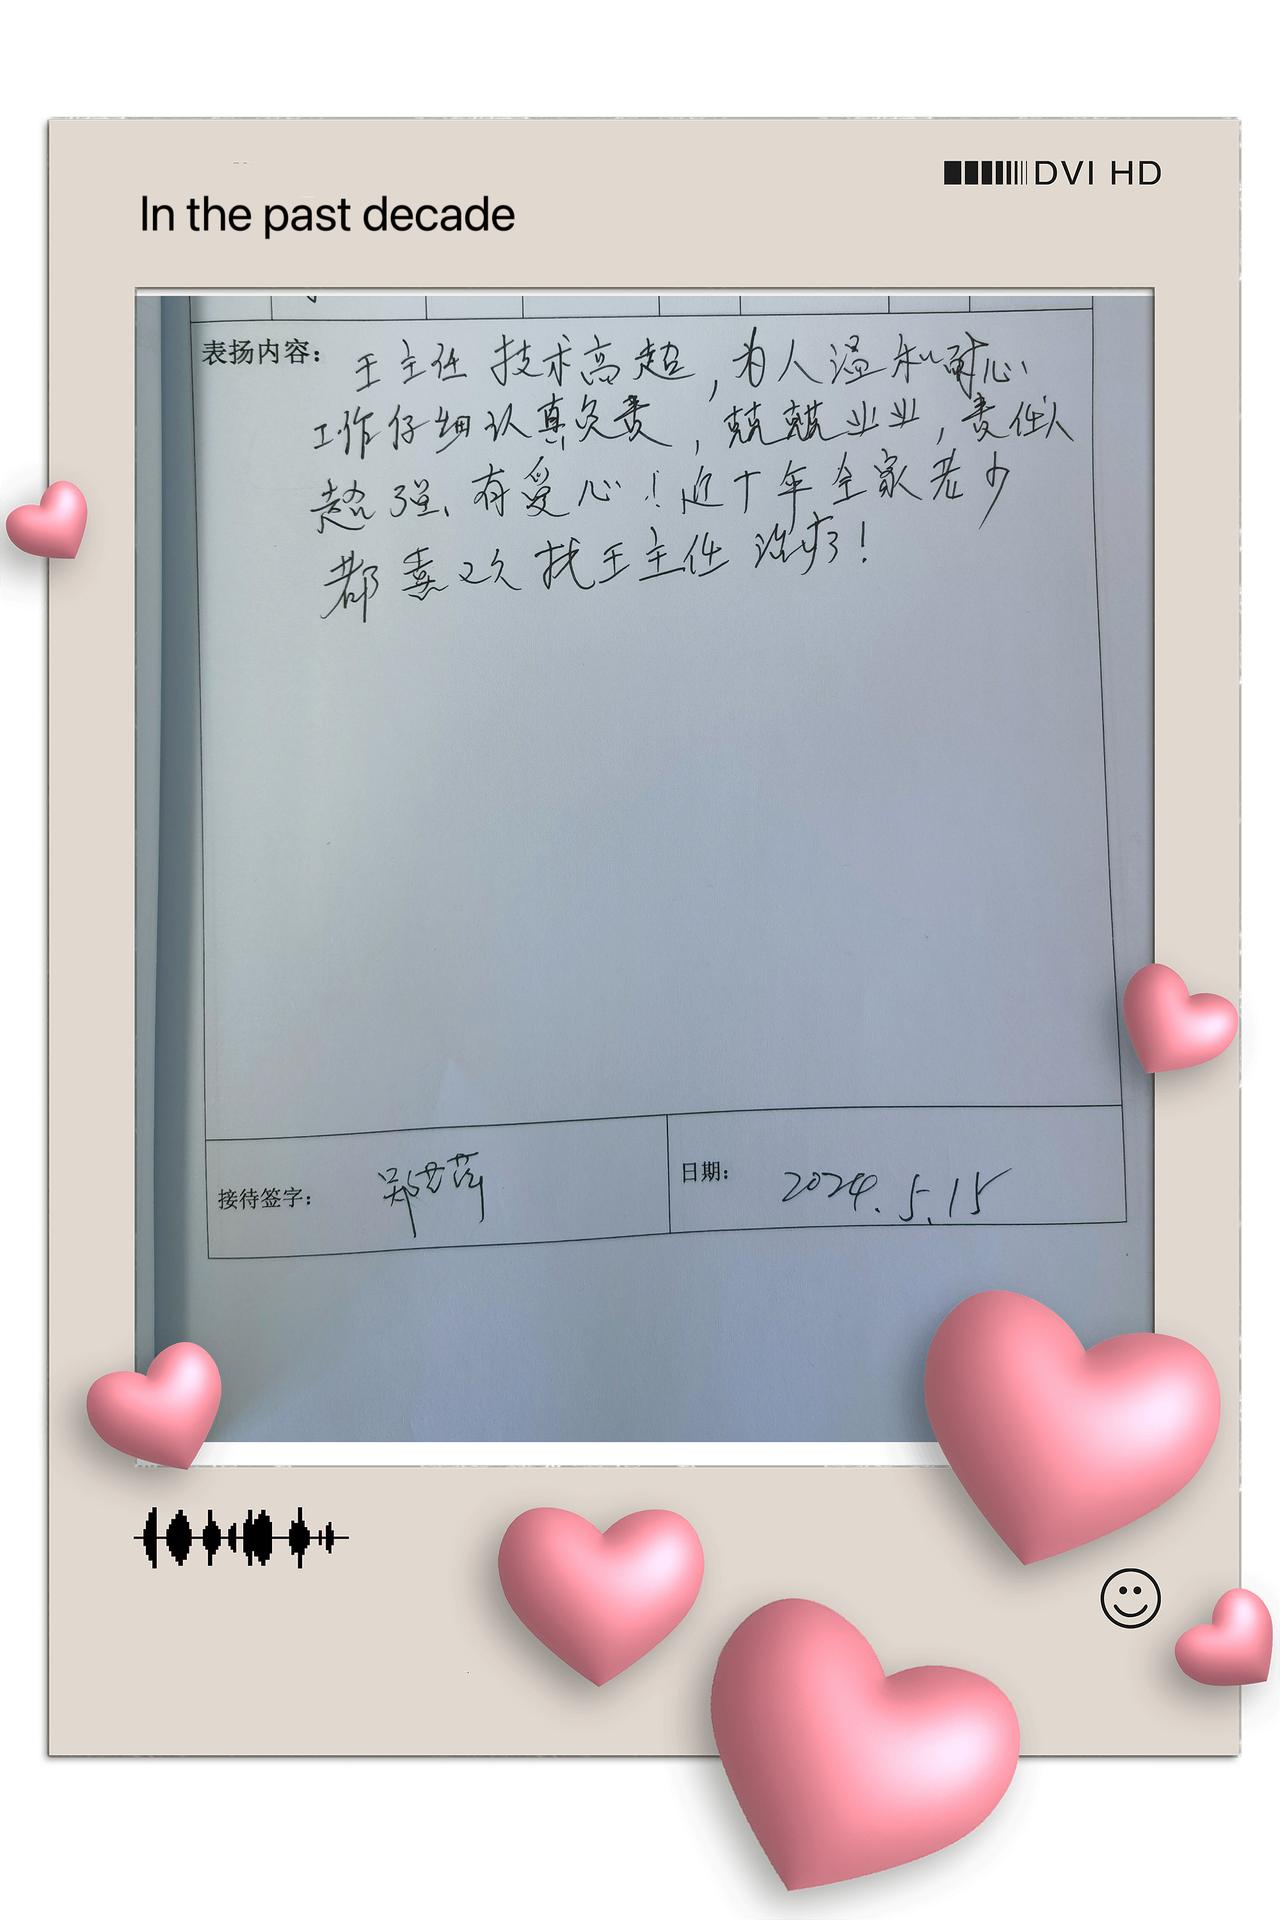 DVI HD
In the past decade
表扬内容：王主任技术高超，为人温和耐心
工作仔细认真负责，兢兢业业，责任心
超强、有爱心！近十年全家老少
都喜欢找王主任治病！
接待签字：郑
日期：2024.5.15